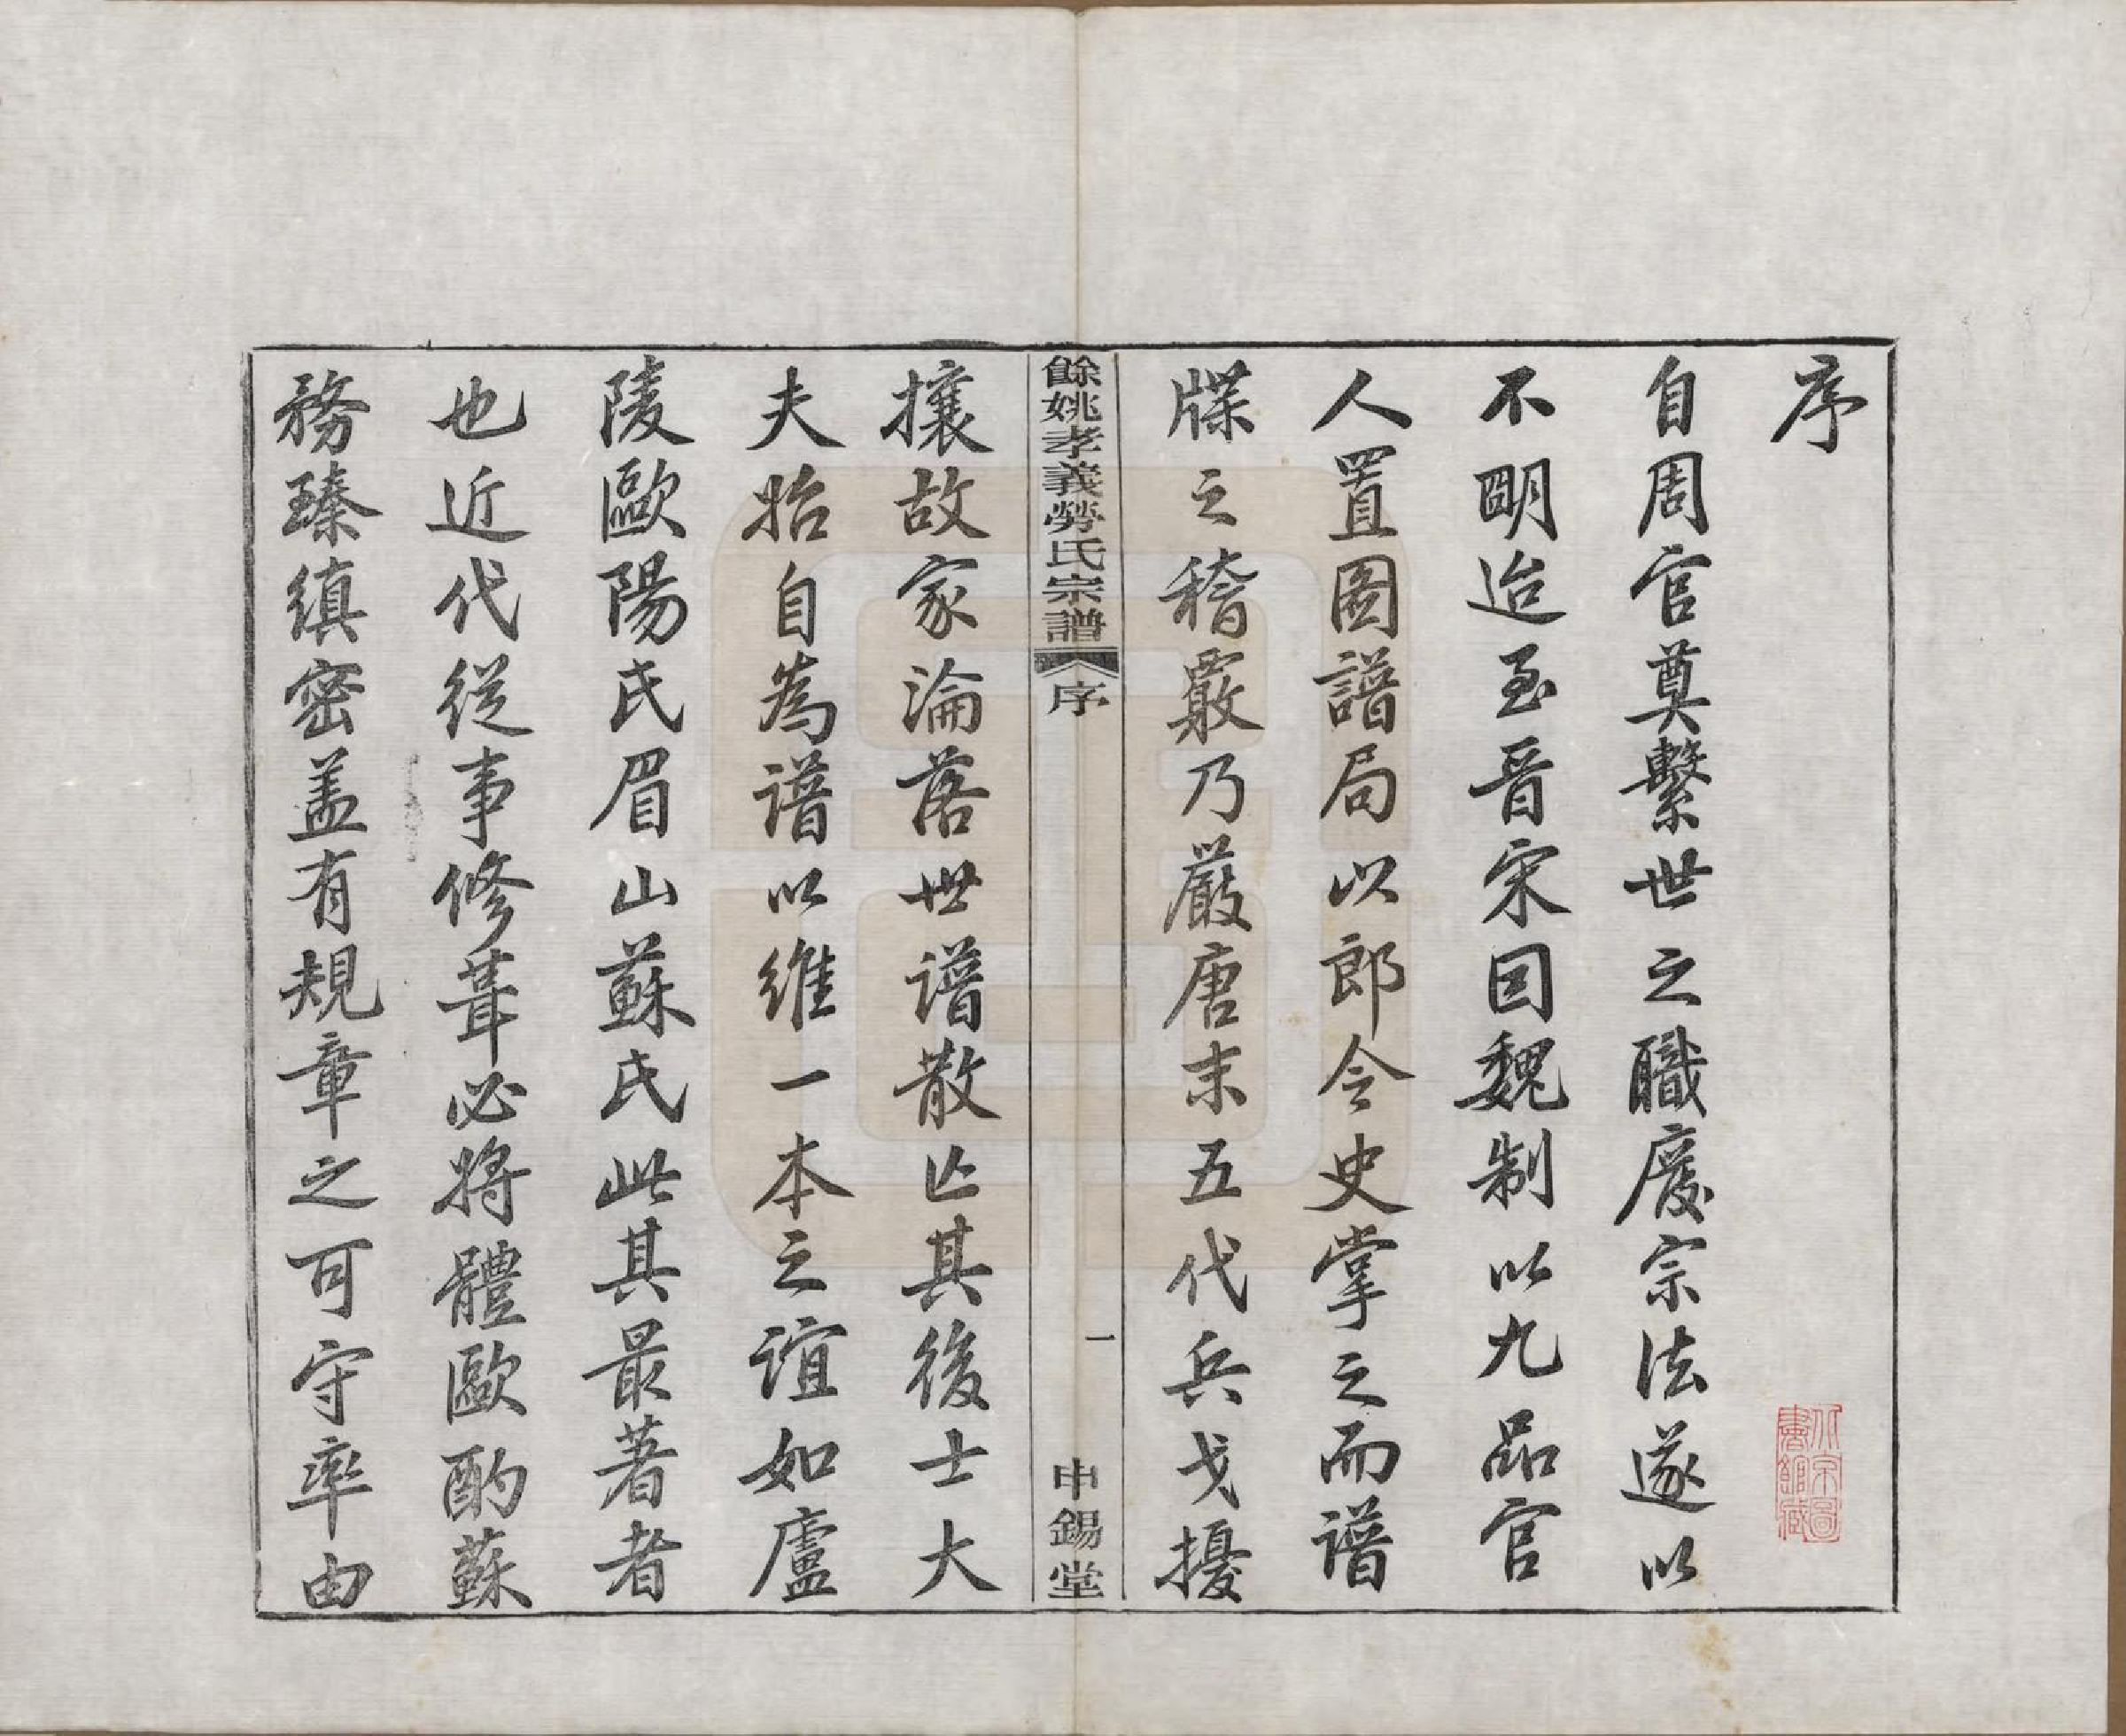 序
自周官奠繫世之職廢宗法遂以
不明迨至晉宋因魏制以九品官
人置圖譜局以郎令史掌之而譜
牒之稽覈乃嚴唐末五代兵戈擾
餘姚孝義勞氏宗譜
序
一
申錫堂
攘故家淪落世譜散亡其後士大
夫始自為譜以維一本之誼如廬
陵歐陽氏眉山蘇氏此其最著者
也近代從事修葺必將體歐酌蘇
務臻縝密蓋有規章之可守率由
北京圖
書館藏